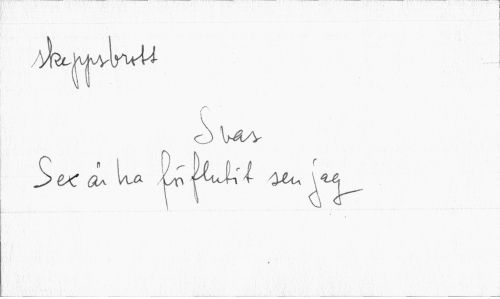 skeppsbrott
Svar
Sex år ha förflutit sen jag